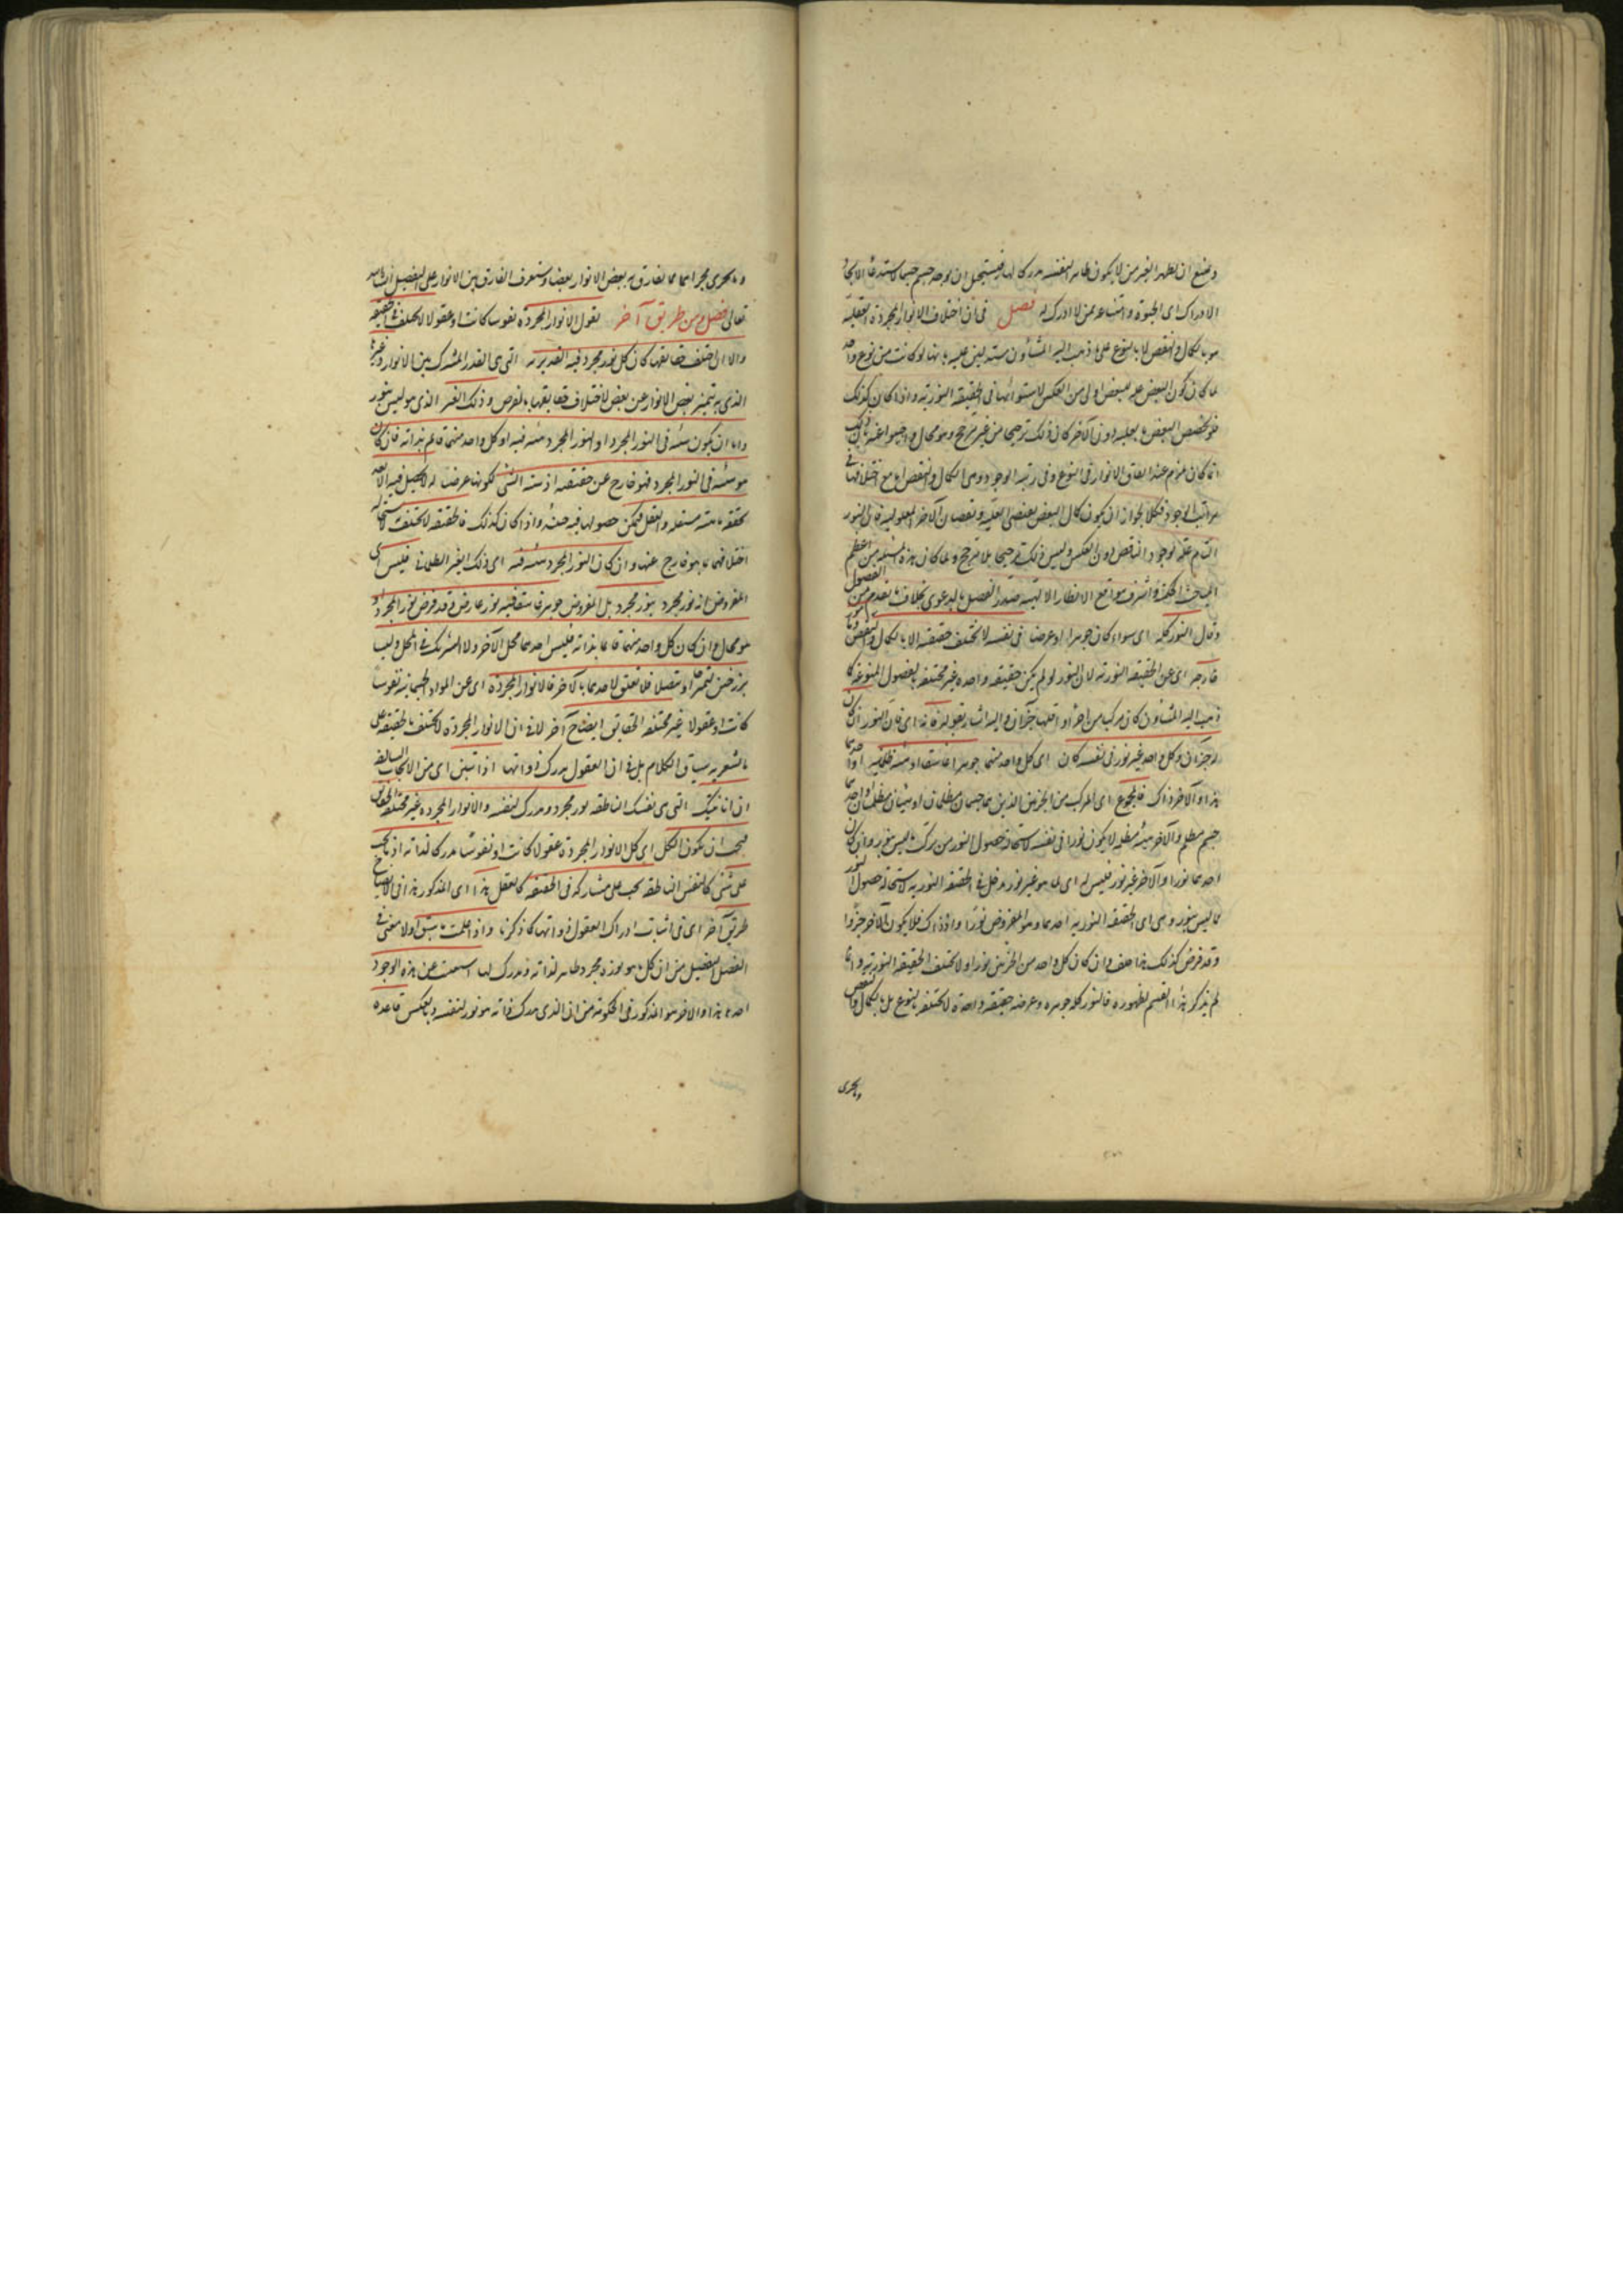 ويمتنع ان يظهر لغيره من لا يكون ظاهرا لنفسه مدركا لها فيستحيل ان يوجد جسم جسما لاستدعاء الايجاد
الادراك اى الحيوة وامتناعه ممن لا ادراك له فصل فى ان اختلاف الانوار المجردة العقلية
هو بالكمال والنقص لا بالنوع على ما ذهب اليه المشاؤن مستدلين عليه بانها لو كانت من نوع واحد
لما كان كون البعض علة للبعض اولى من العكس لاستوائها فى الحقيقة النورية واذا كان كذلك
فلو تخصص البعض بالعلية دون الآخر كان ذلك ترجيحا من غير مرجح وهو محال واجيبوا عنه بان ذلك
انما كان يلزم عند اتفاق الانوار فى النوع وفى رتبة الوجود ومن الكمال والنقص اما مع اختلافها فى
مراتب الوجود فكلا لجواز ان يكون كمال البعض يقتضى العلية ونقصان الآخر المعلولية فان النور
التام علة لوجود الناقص دون العكس وليس ذلك ترجيحا بلا مرجح ولما كان هذه المسئلة من اعظم
المباحث الحكمية واشرف مواقع الانظار الالهية صدر الفصل بالدعوى بخلاف ما تقدم من الفصول
وقال النور كله اى سواء كان جوهرا او عرضا فى نفسه لا تختلف حقيقته الا بالكمال والنقص وبامور
خارجة اى عن الحقيقة النورية لان النور لو لم يكن حقيقة واحدة غير مختلفة بالفصول المنوعة كما
ذهب اليه المشاؤن كان مركبا من اجزاء واقلها جزآن واليه اشار بقوله فانه اى فان النور ان كان
له جزآن وكل واحد غير نور فى نفسه كان اى كل واحد منهما جوهرا غاسقا او هيئة ظلمانية او احدهما
هذا والآخر ذاك فالمجموع اى المركب من الجزئين الذين هما جسمان مظلمان او هيئتان مظلمتان او احدهما
جسم مظلم والآخر هيئة مظلمة لا يكون نورا فى نفسه لاستحالة حصول النور من تركب ما ليس بنور وان كان
احدهما نورا والآخر غير نور فليس له اى لما هو غير نور مدخل فى الحقيقة النورية لاستحالة حصول النور
مما ليس بنور وهى اى الحقيقة النورية احدهما وهو المفروض نورا واذ ذاك فلا يكون الآخر جزءا
وقد فرض كذلك هذا خلف وان كان كل واحد من الجزئين نورا ولا تختلف الحقيقة النورية وانما
لم يذكر هذا القسم لظهوره فالنور كله جوهره وعرضه حقيقة واحدة لا تختلف بالنوع بل بالكمال والنقص
وما يجرى
وما يجرى مجراهما مما يفارق به بعض الانوار بعضا وستعرف الفارق بين الانوار على التفصيل ان شاء الله
تعالى فصل ومن طريق آخر نقول الانوار المجردة نفوسا كانت او عقولا لا تختلف فى الحقيقة
والا اى ان اختلفت حقايقها كان كل نور مجرد فيه النورية التى هى القدر المشترك بين الانوار وغيرها
الذى به يتميز بعض الانوار عن بعض لاختلاف حقايقها بالفرض وذلك الغير الذى هو ليس بنور
واما ان يكون هيئة فى النور المجرد او النور المجرد هيئة فيه او كل واحد منهما قائم بذاته فان كان
هو هيئة فى النور المجرد فهو خارج عن حقيقته اذ هيئة الشئ لكونها عرضا له لا يحصل فيه الا بعد
تحققه ماهية مستقلة فى العقل فيمكن حصولها فيه حينئذ واذا كان كذلك فالحقيقة لا تختلف لاستحالة
اختلافها بما هو خارج عنها وان كان النور المجرد هيئة فيه اى ذلك الغير الظلمانى فليس اى
المفروض انه نور مجرد بنور مجرد بل المفروض جوهر غاسق فيه نور عارض وقد فرض نور المجردا و
هو محال وان كان كل واحد منهما قائما بذاته فليس احدهما محل الآخر ولا الشريك فى المحل وليسا
ببرزخين ليمتزجا او يتصلا فلا تعلق لاحدهما بالآخر فالانوار المجردة اى عن المواد الجسمانية نفوسا
كانت او عقولا غير مختلفة الحقايق ايضاح آخر لا فى ان الانوار المجردة لا تختلف بالحقيقة على
ما يشعر به سياق الكلام بل فى ان العقول مدركة ذواتها اذا تبين اى من الابحاث السالفة
ان انائيتك التى هى نفسك الناطقة نور مجرد ومدرك لنفسه والانوار المجردة غير مختلفة الحقايق
فيجب ان يكون الكل اى كل الانوار المجردة عقولا كانت او نفوسا مدركا لذاته اذ ما يجب
على شئ كالنفس الناطقة يجب على مشاركه فى الحقيقة كالعقل هذا اى المذكور هذا فى الايضاح
طريق آخر اى فى اثبات ادراك العقول ذواتها كما ذكرنا واذ علمت ما سبق اولا يعنى فى
الفصل المفصل من ان كل ما هو نور مجرد ظاهر لذاته ومدرك لها استغنيت عن هذه الوجوه
احدها هذا والآخر هو المذكور فى الحكومة من ان الذى مدرك ذاته هو نور لنفسه وبالعكس قاعدة